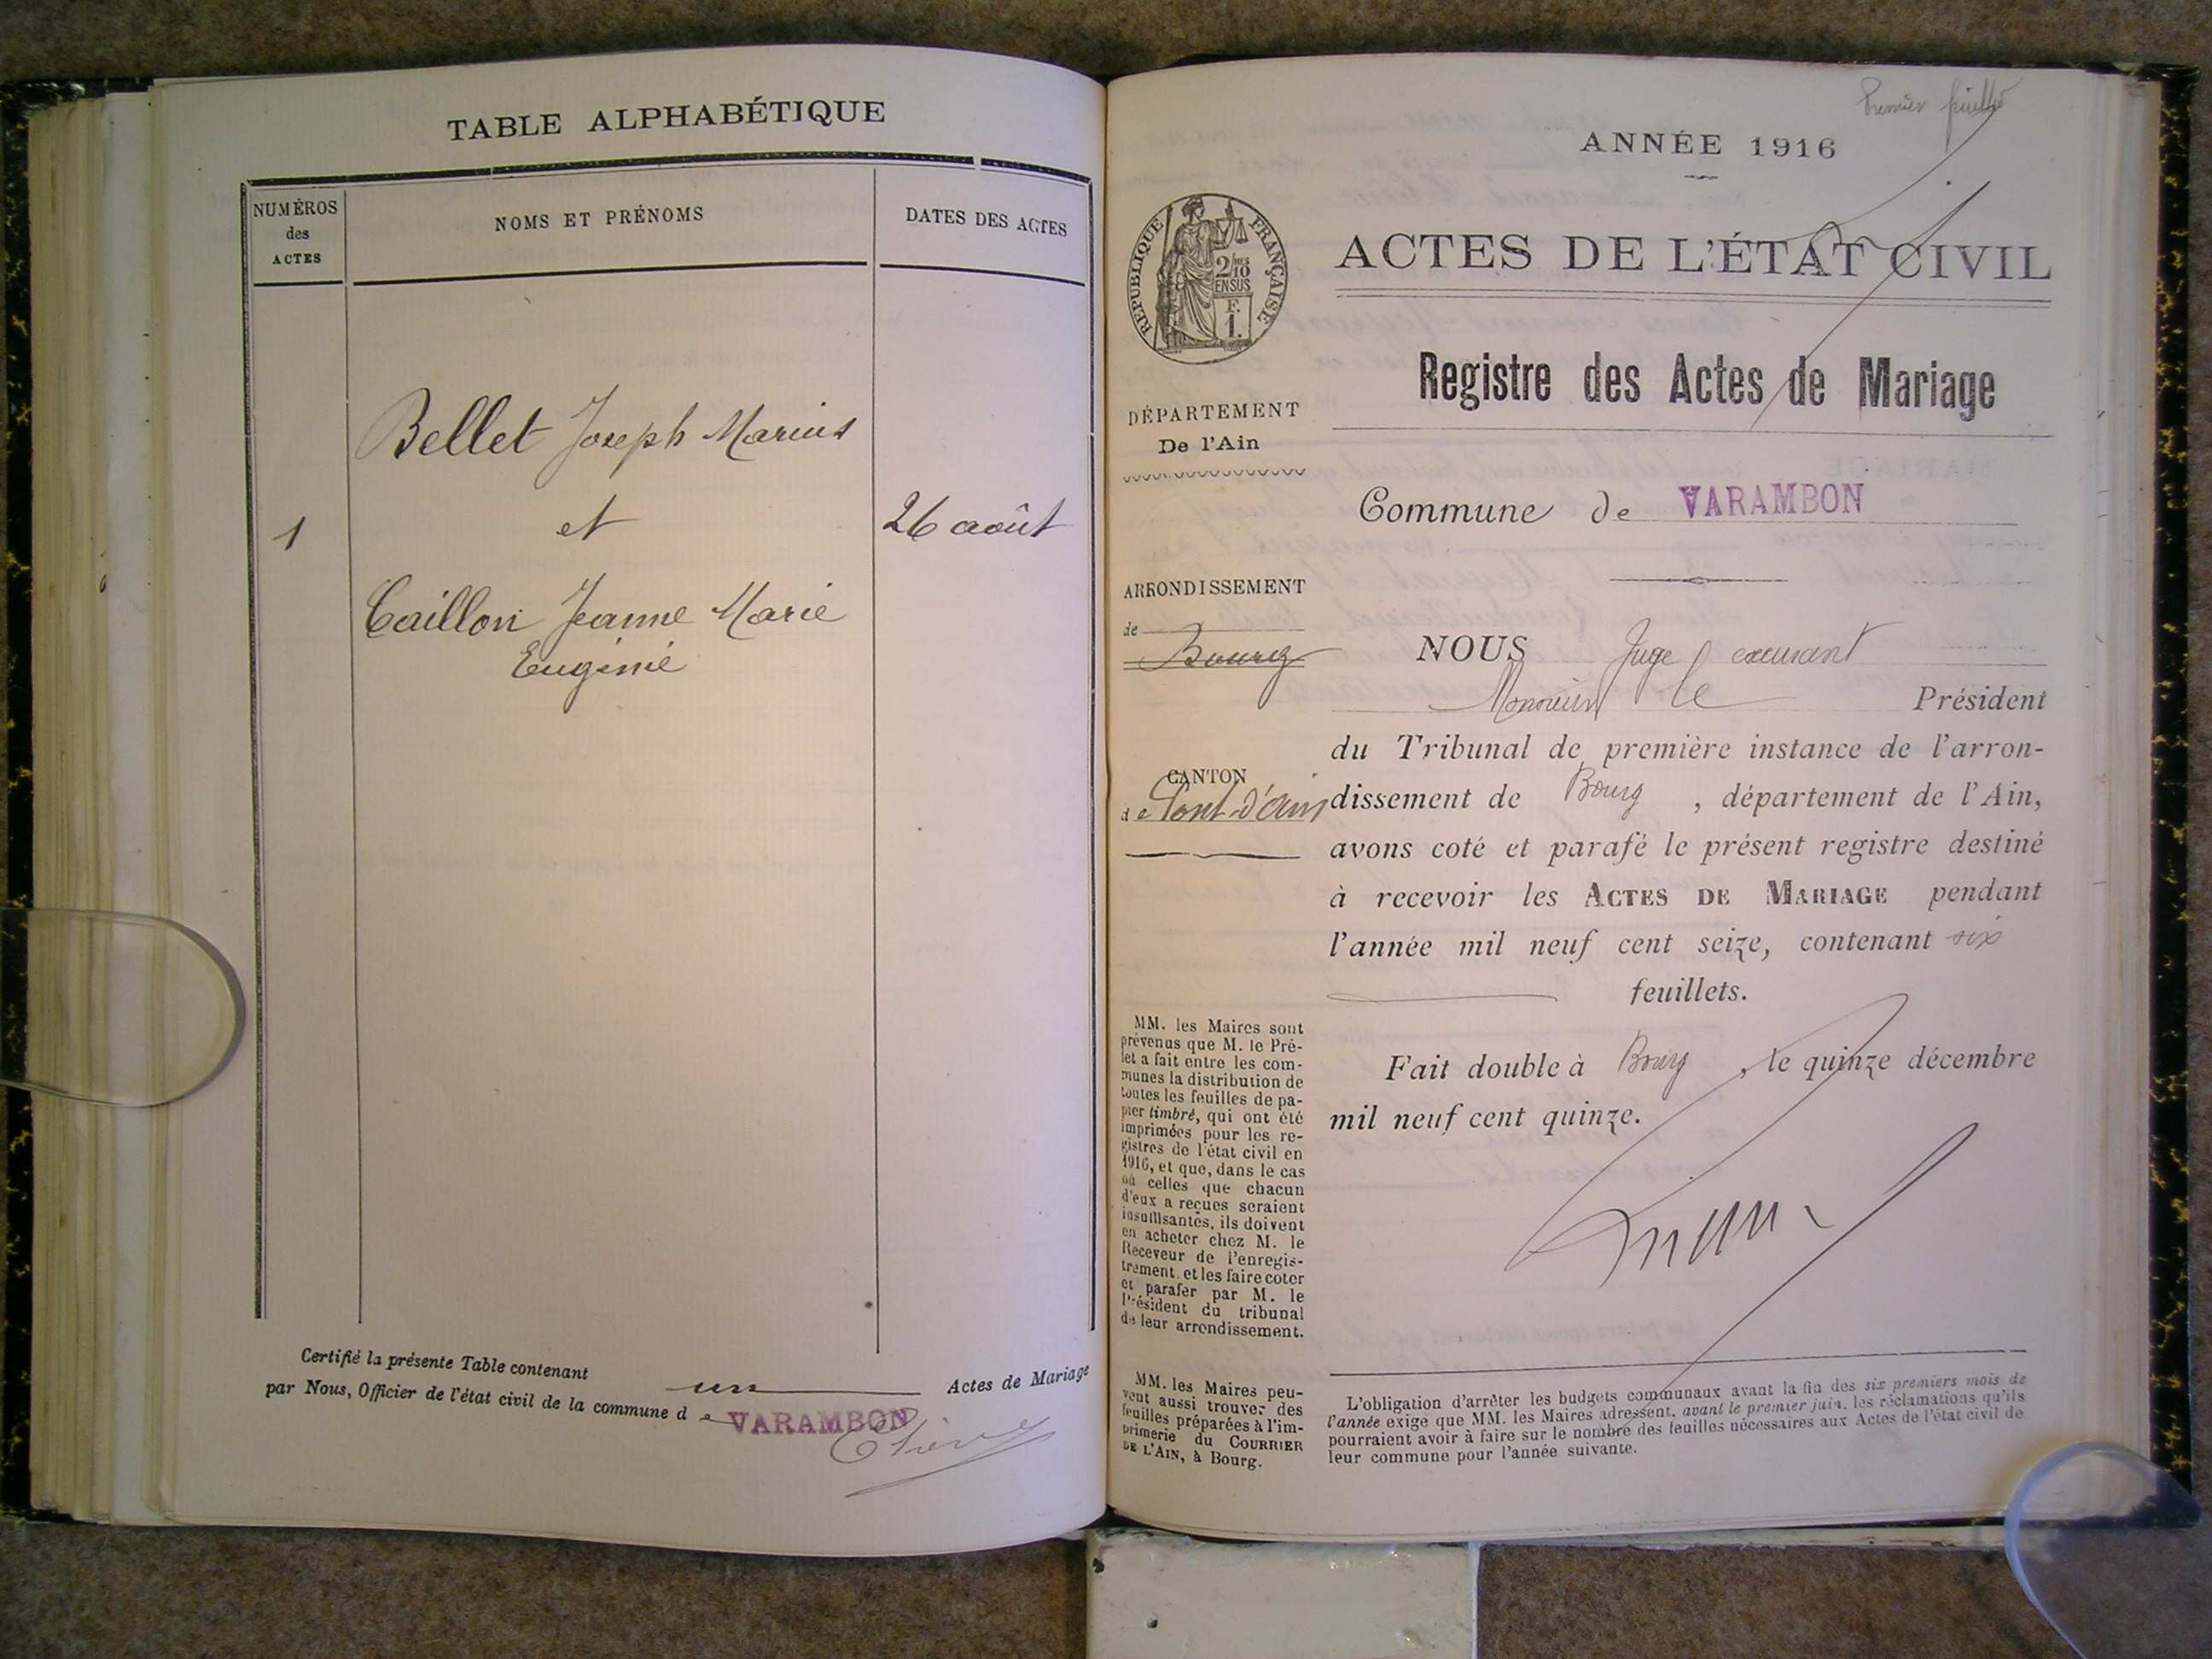 TABLE ALPHABÉTIQUE
NUMÉROS
des
ACTES
NOMS ET PRÉNOMS
DATES DES ACTES
Bellet Joseph Marius
1
et
26 août
Caillon Jeanne Marie
Eugénie
Certifié la présente Table contenant un Actes de Mariage
par Nous, Officier de l'état civil de la commune de VARAMBON
Premier feuillet
ANNÉE 1916
RÉPUBLIQUE FRANÇAISE
2/10
EN SUS
F.
1.
ACTES DE L'ÉTAT CIVIL
Registre des Actes de Mariage
DÉPARTEMENT
De l'Ain
Commune de VARAMBON
ARRONDISSEMENT
de
Bourg
CANTON
de Pont-d'Ain
NOUS Juge
Monsieur le Président
du Tribunal de première instance de l'arron-
dissement de Bourg, département de l'Ain,
avons coté et parafé le présent registre destiné
à recevoir les ACTES DE MARIAGE pendant
l'année mil neuf cent seize, contenant six
feuillets.
Fait double à Bourg, le quinze décembre
mil neuf cent quinze.
MM. les Maires sont
prévenus que M. le Pré-
fet a fait entre les com-
munes la distribution de
toutes les feuilles de pa-
pier timbré, qui ont été
imprimées pour les re-
gistres de l'état civil en
1916, et que, dans le cas
où celles que chacun
d'eux a reçues seraient
insuffisantes, ils doivent
en acheter chez M. le
Receveur de l'enregis-
trement et les faire coter
et parafer par M. le
Président du tribunal
de leur arrondissement.
MM. les Maires peu-
vent aussi trouver des
feuilles préparées à l'im-
primerie du COURRIER
DE L'AIN, à Bourg.
L'obligation d'arrêter les budgets communaux avant la fin des six premiers mois de
l'année exige que MM. les Maires adressent, avant le premier juin, les réclamations qu'ils
pourraient avoir à faire sur le nombre des feuilles nécessaires aux Actes de l'état civil de
leur commune pour l'année suivante.